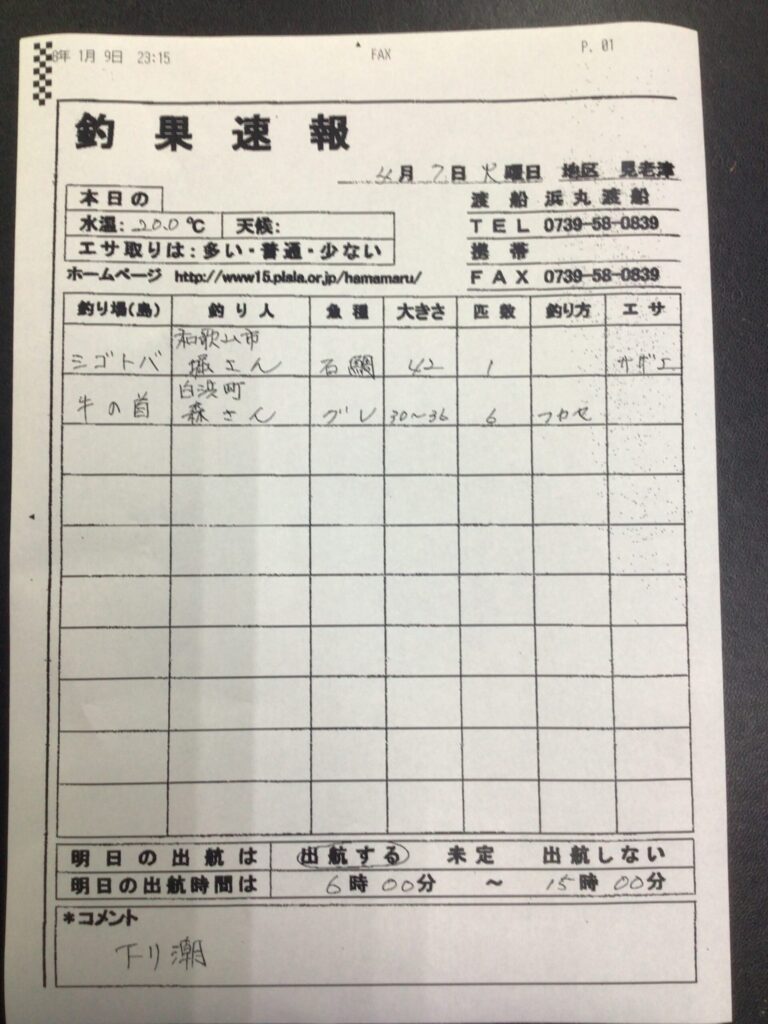 8年 1月 9日 23:15 FAX P. 01
釣果速報
4月 7日 火曜日 地区 見老津
本日の
渡船 浜丸渡船
水温: 20.0 ℃ 天候:
TEL 0739-58-0839
エサ取りは:多い・普通・少ない
携帯
ホームページ http://www15.plala.or.jp/hamamaru/
FAX 0739-58-0839
釣り場(島) 釣り人 魚種 大きさ 匹数 釣り方 エサ
和歌山市
シゴトバ 堀さん 石鯛 42 1 サザエ
白浜町
牛の首 森さん グレ 30~36 6 フカセ
明日の出航は 出航する 未定 出航しない
明日の出航時間は 6時00分 ~ 15時00分
*コメント
下り潮